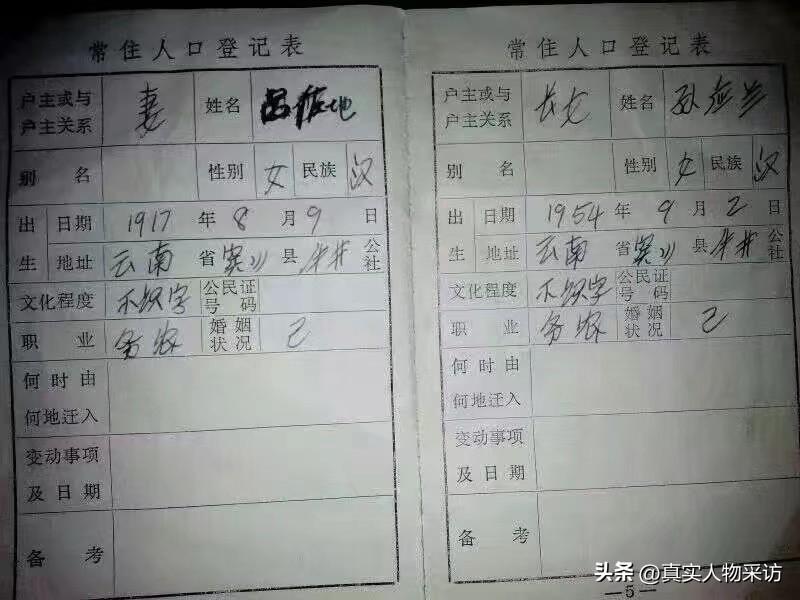 常住人口登记表
户主或与
户主关系
妻
姓名
别名
性别
女
民族
汉
出生
日期
1917年8月9日
地址
云南省宾川县牛井公社
文化程度
不识字
公民证
号码
职业
务农
婚姻
状况
已
何时由
何地迁入
变动事项
及日期
备考
常住人口登记表
户主或与
户主关系
长女
姓名
孙
别名
性别
女
民族
汉
出生
日期
1954年9月2日
地址
云南省宾川县牛井公社
文化程度
不识字
公民证
号码
职业
务农
婚姻
状况
已
何时由
何地迁入
变动事项
及日期
备考
—5—
头条 @真实人物采访